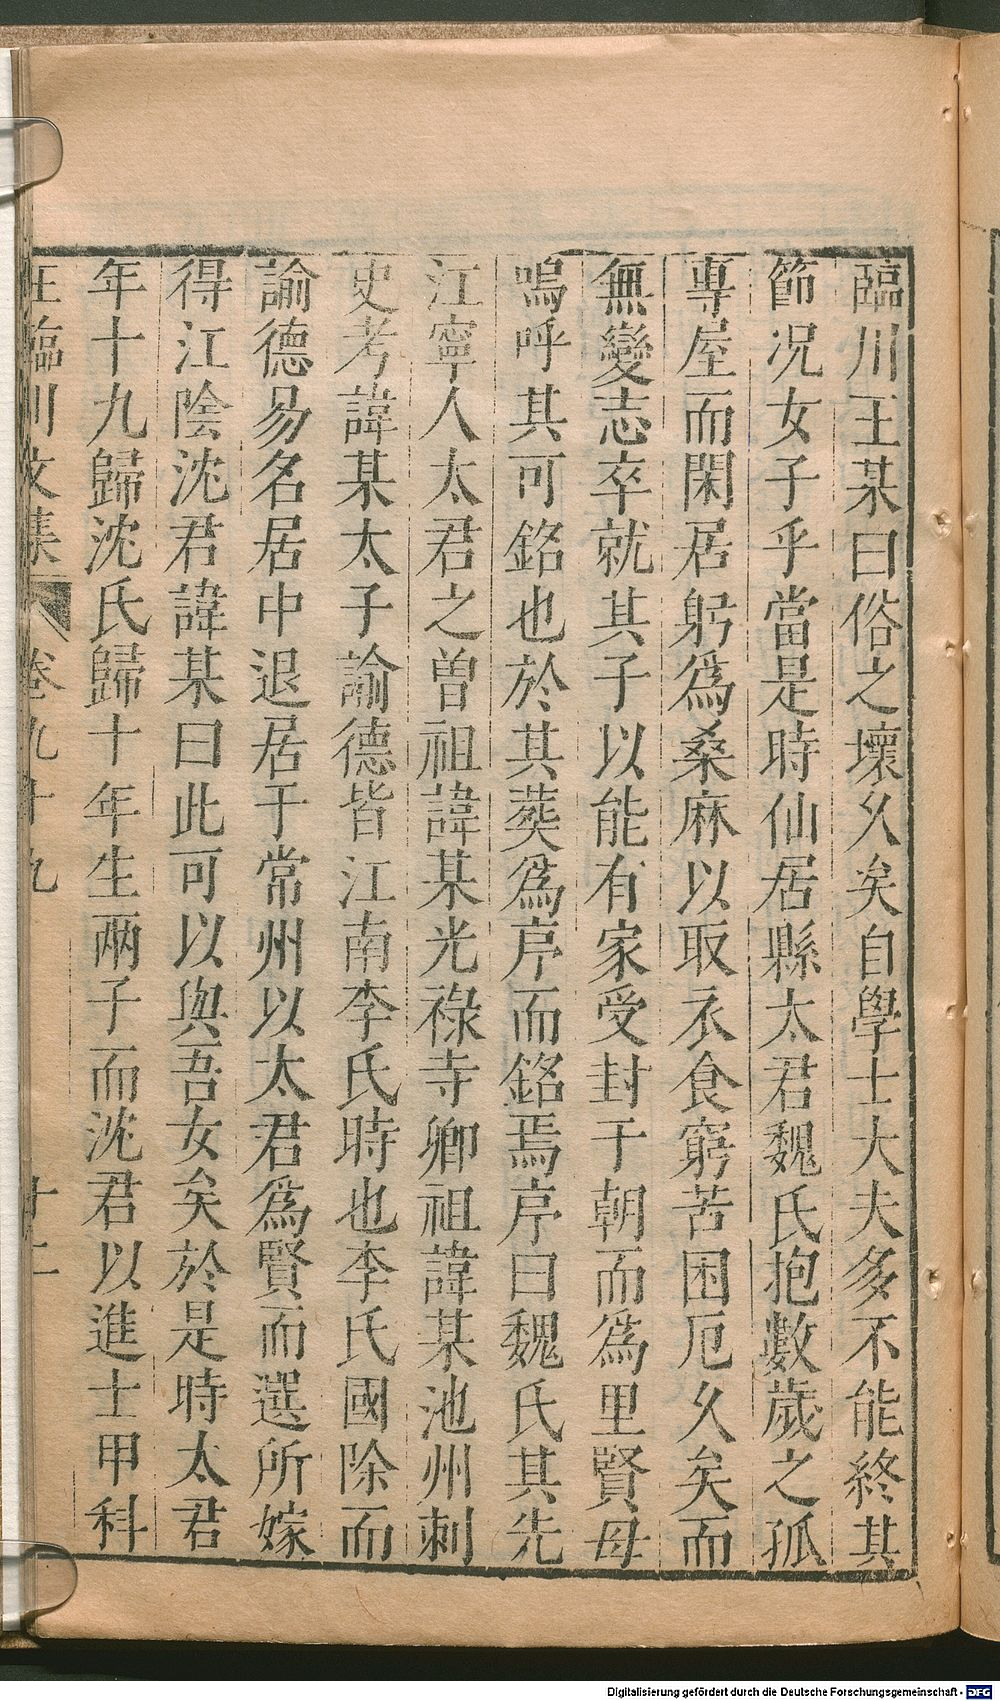 臨川王某曰俗之壞久矣自學士大夫多不能終其
節况女子乎當是時仙居縣太君魏氏抱數歲之孤
專屋而閑居躬爲桑麻以取衣食窮苦困厄久矣而
無變志卒就其子以能有家受封于朝而爲里賢母
嗚呼其可銘也於其葬爲序而銘焉序曰魏氏其先
江寧人太君之曽祖諱某光祿寺卿祖諱某池州刺
史考諱某太子諭德皆江南李氏時也李氏國除而
諭德易名居中退居于常州以太君爲賢而選所嫁
得江陰沈君諱某曰此可以與吾女矣於是時太君
年十九歸沈氏歸十年生兩子而沈君以進士甲科
王臨川文集 卷九十九 十二
Digitalisierung gefördert durch die Deutsche Forschungsgemeinschaft - DFG